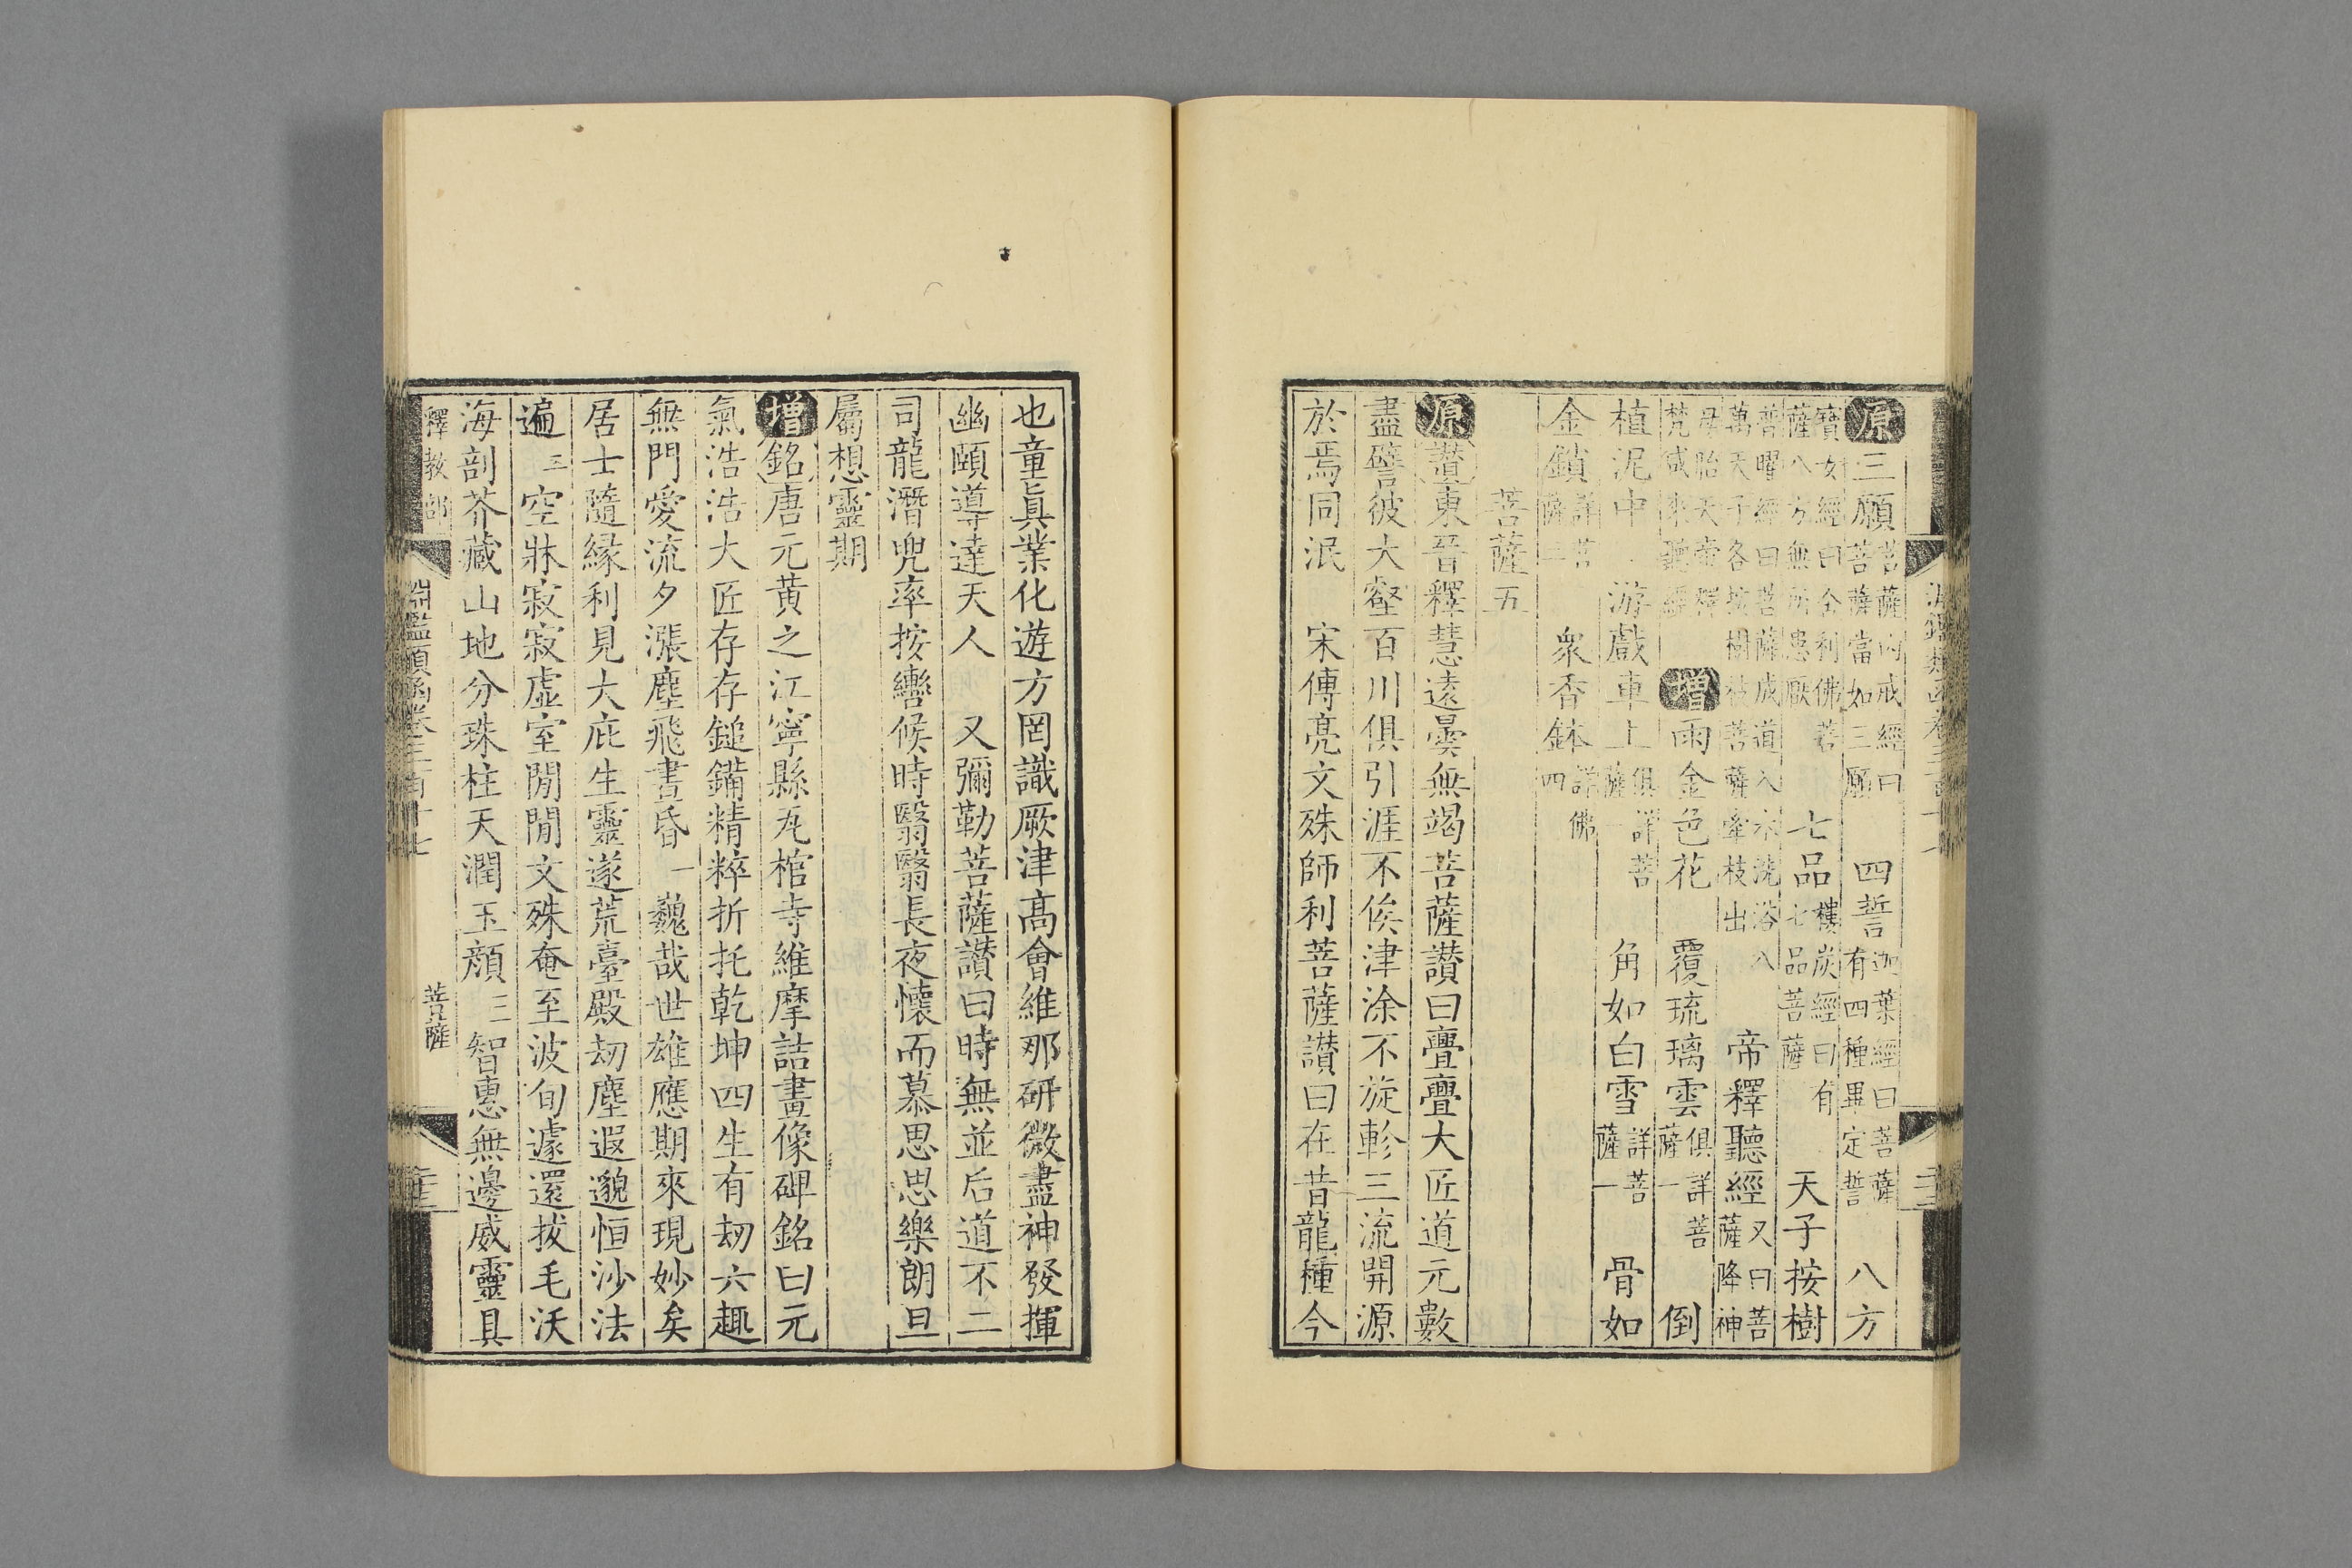 原三願菩薩內戒經曰菩薩當如三願 四誓迦葉經曰菩薩有四種畢定誓 八方
寶女經曰舍利佛菩薩八方無所患厭 七品樓炭經曰有七品菩薩 天子按樹
普曜經曰菩薩成道入水洗浴八萬天子各按樹枝菩薩牽枝出 帝釋聽經又曰菩薩降神
母胎天帝釋梵咸來聽經 增雨金色花 覆琉璃雲俱詳菩薩一 倒
植泥中 游戲車上俱詳菩薩 角如白雪詳菩薩一 骨如
金鎖詳菩薩二 衆香鉢詳佛四
菩薩五
原讃東晉釋慧遠曇無竭菩薩讃曰亹亹大匠道元數
盡譬彼大壑百川俱引涯不俟津涂不旋軫三流開源
於焉同泯 宋傅亮文殊師利菩薩讃曰在昔龍種今
也童眞業化遊方罔識厥津高會維那研微盡神發揮
幽賾導達天人 又彌勒菩薩讃曰時無並后道不二
司龍潛兜率按轡候時翳翳長夜懷而慕思思樂朗旦
屬想靈期
增銘唐元黃之江寧縣瓦棺寺維摩詰畫像碑銘曰元
氣浩浩大匠存存鎚鏽精粹折托乾坤四生有刼六趣
無門愛流夕漲塵飛晝昏一巍哉世雄應期來現妙矣
居士隨緣利見大庇生靈遂荒臺殿刼塵遐邈恒沙法
遍二空牀寂寂虛室閒閒文殊奄至波旬遽還拔毛沃
海剖芥藏山地分珠柱天潤玉顏三智惠無邊威靈具
釋教部 淵鑑類函卷三百十七 菩薩